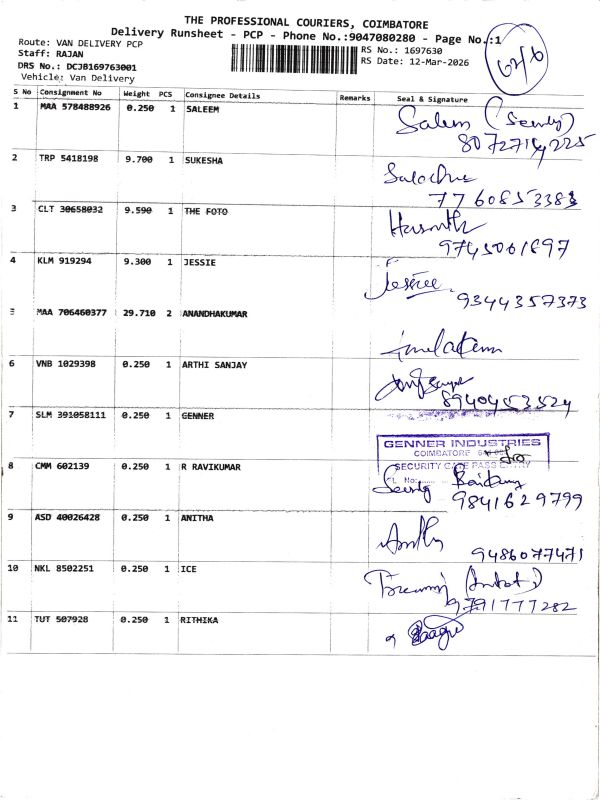 THE PROFESSIONAL COURIERS, COIMBATORE
Delivery Runsheet - PCP - Phone No.:9047080280 - Page No.:1
Route: VAN DELIVERY PCP
RS No.: 1697630
Staff: RAJAN
RS Date: 12-Mar-2026
DRS No.: DCJB169763001
Vehicle: Van Delivery
S No Consignment No Weight PCS Consignee Details Remarks Seal & Signature
1 MAA 578488926 0.250 1 SALEEM
Saleem (Security)
2 TRP 5418198 9.700 1 SUKESHA
7760853383
3 CLT 30658032 9.590 1 THE FOTO
9745061897
4 KLM 919294 9.300 1 JESSIE
Jessiee
9344357373
5 MAA 706460377 29.710 2 ANANDHAKUMAR
6 VNB 1029398 0.250 1 ARTHI SANJAY
8940453524
7 SLM 391058111 0.250 1 GENNER
GENNER INDUSTRIES
COIMBATORE
SECURITY GATE PASS ENTRY
8 CMM 602139 0.250 1 R RAVIKUMAR
9841629799
9 ASD 40026428 0.250 1 ANITHA
9486077471
10 NKL 8502251 0.250 1 ICE
9791777282
11 TUT 507928 0.250 1 RITHIKA